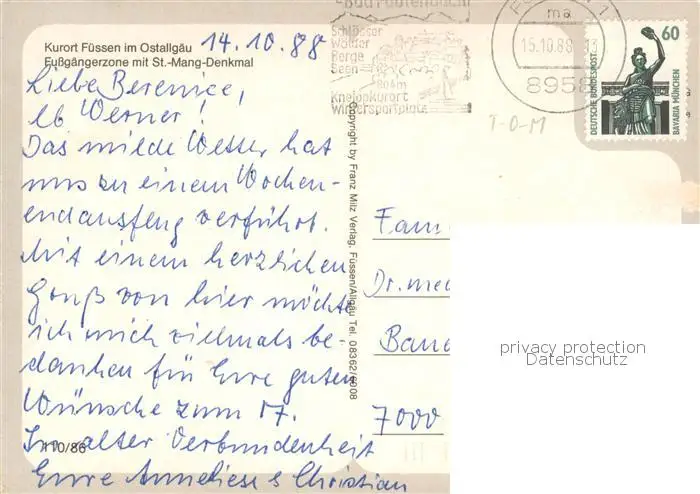 Kurort Füssen im Ostallgäu
Fußgängerzone mit St.-Mang-Denkmal
14.10.88
Liebe Berenice,
lb Werner!
Das milde Wetter hat
uns zu einem Wochen-
endausflug verführt.
Mit einem herzlichen
Gruß von hier möchte
ich mich vielmals be-
danken für Eure guten
Wünsche zum 17.
In alter Verbundenheit
Eure Anneliese & Christian
110/86
Copyright by Franz Milz Verlag, Füssen/Allgäu Tel. 08362/
Bad Faulenbach
Schlösser
Wälder
Berge
Seen
804m
Kneippkurort
Wintersportplatz
ma
15.10.88
8958
60
DEUTSCHE BUNDESPOST
BAVARIA MÜNCHEN
T-O-M
Fam
Dr. med
7000
privacy protection
Datenschutz